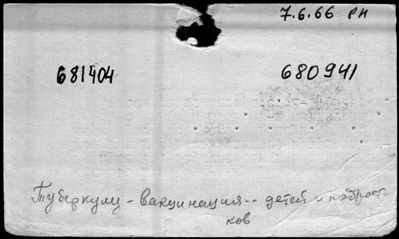 7.6.66 рп
681404
680941
Туберкулу - вакцинация -- детей и подрост-
ков